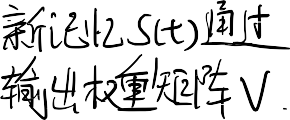 新记忆S(t)通过
输出权重矩阵V.